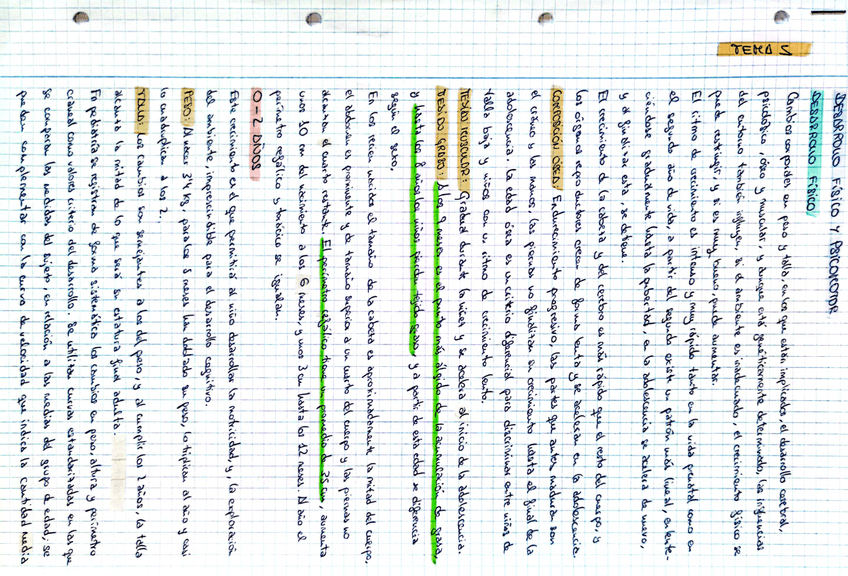 TEMA 5
DESARROLLO FÍSICO Y PSICOMOTOR
DESARROLLO FÍSICO
Cambios corporales en peso y talla, en los que están implicados, el desarrollo cerebral,
psicológico, óseo y muscular, y aunque está genéticamente determinado, las influencias
del entorno también influyen, si el ambiente es inadecuado, el crecimiento físico se
puede restringir y si es muy bueno puede aumentar.
El ritmo de crecimiento es intenso y muy rápido tanto en la vida prenatal como en
el segundo año de vida, a partir del segundo existe un patrón más lineal, enlente-
ciéndose gradualmente hasta la pubertad, en la adolescencia se acelera de nuevo,
y al finalizar esta, se detiene.
El crecimiento de la cabeza y del cerebro es más rápido que el resto del cuerpo, y
los órganos reproductores crecen de forma lenta y se aceleran en la adolescencia.
COMPOSICIÓN ÓSEA: Endurecimiento progresivo, las partes que antes maduran son
el cráneo y las manos, (las piernas no finalizan su crecimiento hasta el final de la
adolescencia. La edad ósea es un criterio diferencial para discriminar entre niños de
talla baja y niños con un ritmo de crecimiento lento.
TEJIDO MUSCULAR: Gradual durante la niñez y se acelera al inicio de la adolescencia.
TEJIDO GRASO: A los 9 meses es el punto más álgido de la acumulación de grasa,
y hasta los 8 años los niños pierden tejido graso, y a partir de esta edad se diferencia
según el sexo.
En los recién nacidos el tamaño de la cabeza es aproximadamente la mitad del cuerpo,
el abdomen es prominente y de tamaño superior a un cuarto del cuerpo y las piernas no
alcanzan el cuarto restante. El perímetro cefálico tiene un promedio de 35 cm, aumenta
unos 10 cm del nacimiento a los 6 meses y unos 3 cm hasta los 12 meses. Al año el
perímetro cefálico y torácico se igualan.
0-2 AÑOS
Este crecimiento es el que permitirá al niño desarrollar la motricidad y, la exploración
del ambiente, imprescindible para el desarrollo cognitivo.
PESO: Al nacer 3'4 kg, para los 5 meses han doblado su peso, lo triplican al año y casi
lo cuadruplican a los 2.
TALLA: Los cambios son semejantes a los del peso, y al cumplir los 2 años, la talla
alcanza la mitad de lo que será su estatura final adulta.
En pediatría se registran de forma sistemática los cambios en peso, altura y perímetro
craneal como valores criterio del desarrollo. Se utilizan curvas estandarizadas en las que
se comparan las medidas del sujeto en relación a las medias del grupo de edad, se
pueden complementar con la curva de velocidad que indica la cantidad media